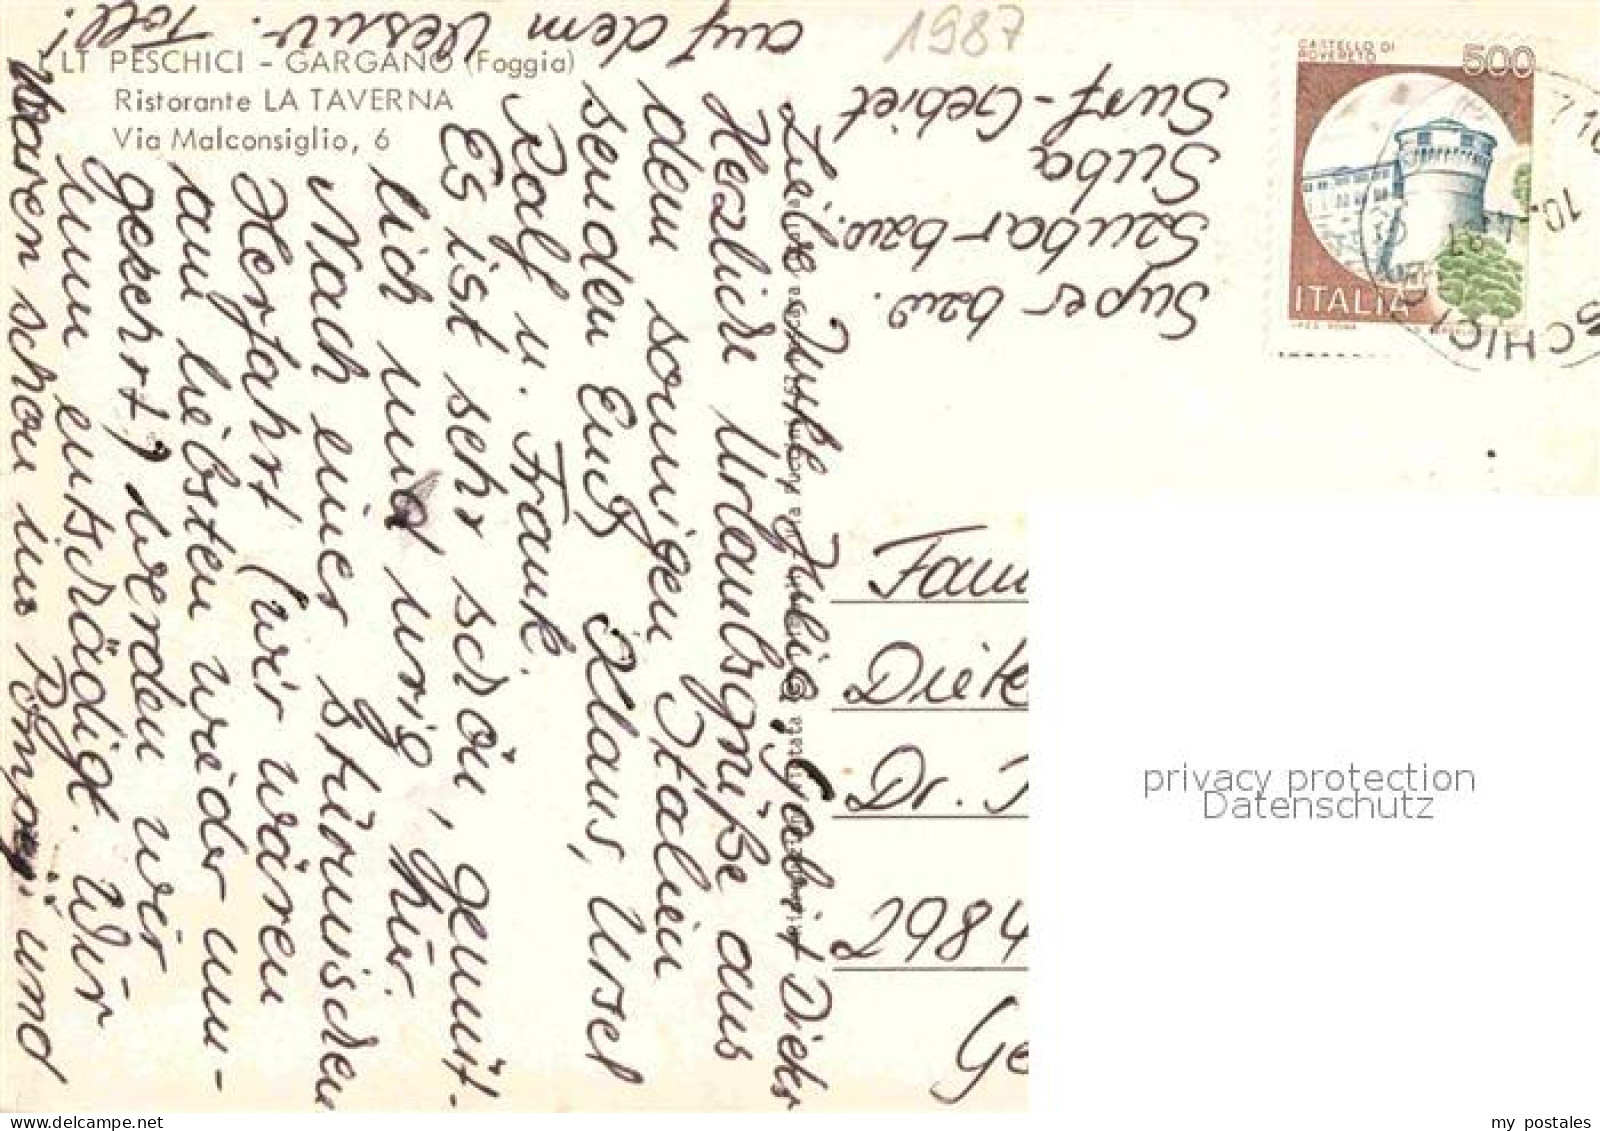 LT PESCHICI - GARGANO (Foggia)
Ristorante LA TAVERNA
Via Malconsiglio, 6
1987
CASTELLO DI
ROVERETO
500
ITALIA
Liebe Jutta, Julia, Gabi u. Dieter
Herzliche Urlaubsgrüße aus
dem sonnigen Italien
senden Euch Klaus, Ursel
Ralf u. Frank.
Es ist sehr schön, gemüt-
lich und urig hier.
Nach einer stürmischen
Herfahrt (wir wären
am liebsten wieder um-
gekehrt) werden wir
nun entschädigt. Wir
waren schon in Pompeji und
auf dem Vesuv. Toll!
Super bzw.
Szubar bzw.
Suba
Surf-Gebiet
Fam
Diete
Dr.
2984
Ge
privacy protection
Datenschutz
my postales